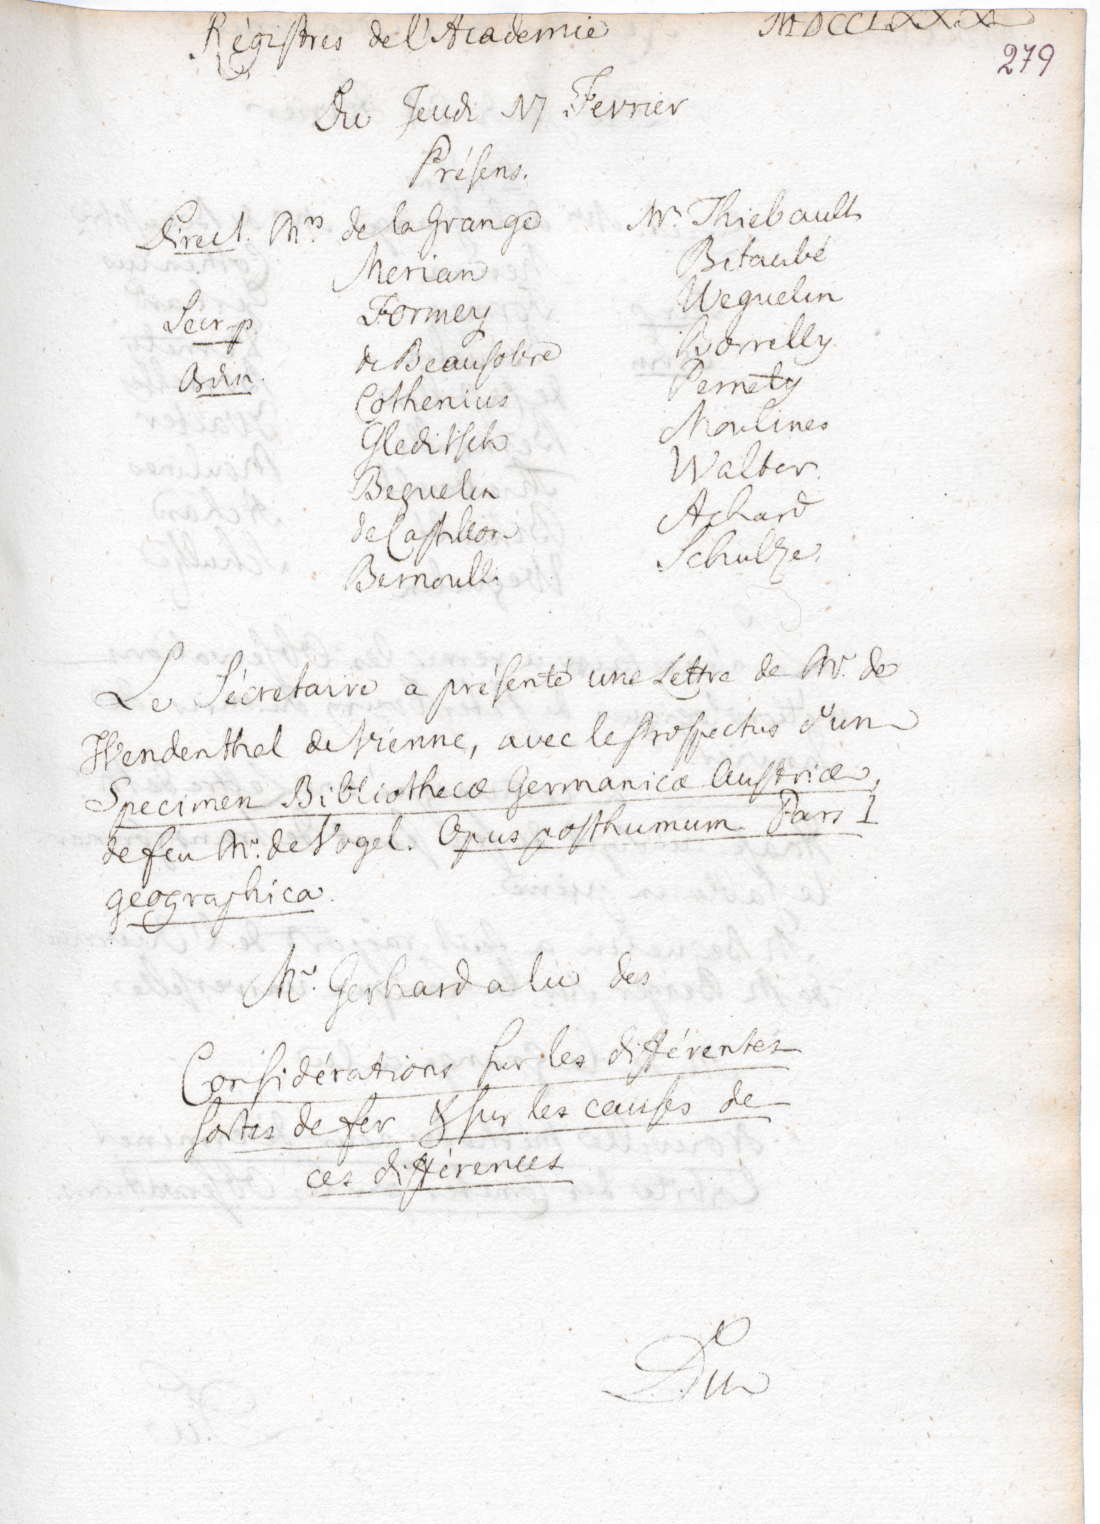 Régistres de l'Academie MDCCLXXX
279
Du Jeudi 17 Fevrier
Présens.
Direct. Mrs de la Grange
Merian
Secr. p Formey
Ordin. de Beausobre
Cothenius
Gleditsch
Beguelin
de Castillon
Bernoulli
Mr. Thiebault
Bitaubé
Weguelin
Borrelly
Pernety
Moulines
Walter
Achard
Schulze
Le Sécretaire a présenté une Lettre de Mr. de
Wendenthel de Vienne, avec le Prospectus d'un
Specimen Bibliothecæ Germanicæ Austriæ,
de feu Mr. de Vogel. Opus posthumum. Pars I
geographica.
Mr. Gerhard a lu des
Considérations sur les différentes
sortes de fer & sur les causes de
ces différences
Du